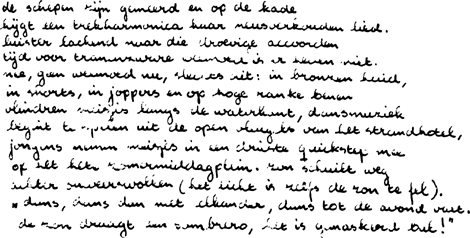 de schepen zijn gemeerd en op de kade
hijgt een trekharmonica haar neusverkouden lied.
luister lachend naar die droevige accoorden
tijd voor is er heven niet.
nee, geen weemoed nee, uit: in bronzen huid,
in shorts, in joppers en op hoge ranke benen
vlinderen meisjes langs de waterkant, dansmuziek
begint te uit de open vleugels van het strandhotel,
jongens nemen meisjes in een drieste quickstep mee
op het hete zomermiddagplein. zon schuilt weg
achter zomerwolken (het licht is zelfs de zon te fel).
"dans, dans dan met elkander, dans tot de avond valt.
de zon draagt een sombrero, het is gemaskerd bal!"